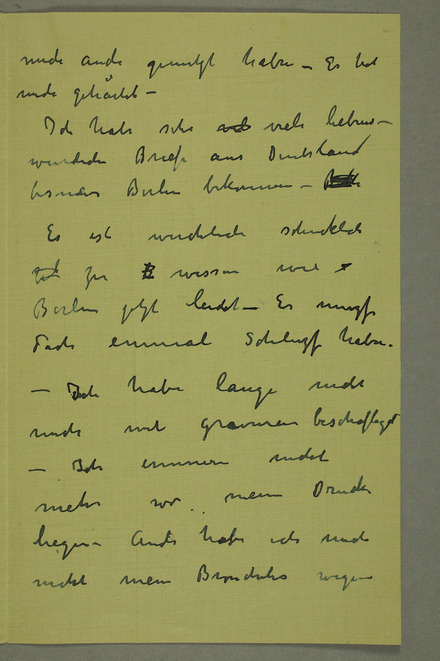 mich auch genügt haben – Es hat
mich gehärtet –
Ich habe sehr viele liebens–
würdige Briefe aus Deutschland
besonders Berlin bekommen –
Es ist wirklich schrecklich
zu wissen wie
Berlin jetzt leidet – Es muss
doch einmal Schluss haben.
– Ich habe lange nicht
mich mit Gravuren beschäftigt
– Ich erinnere nicht
mehr wo meine Drucke
liegen – Auch habe ich mich
nicht mein wegen